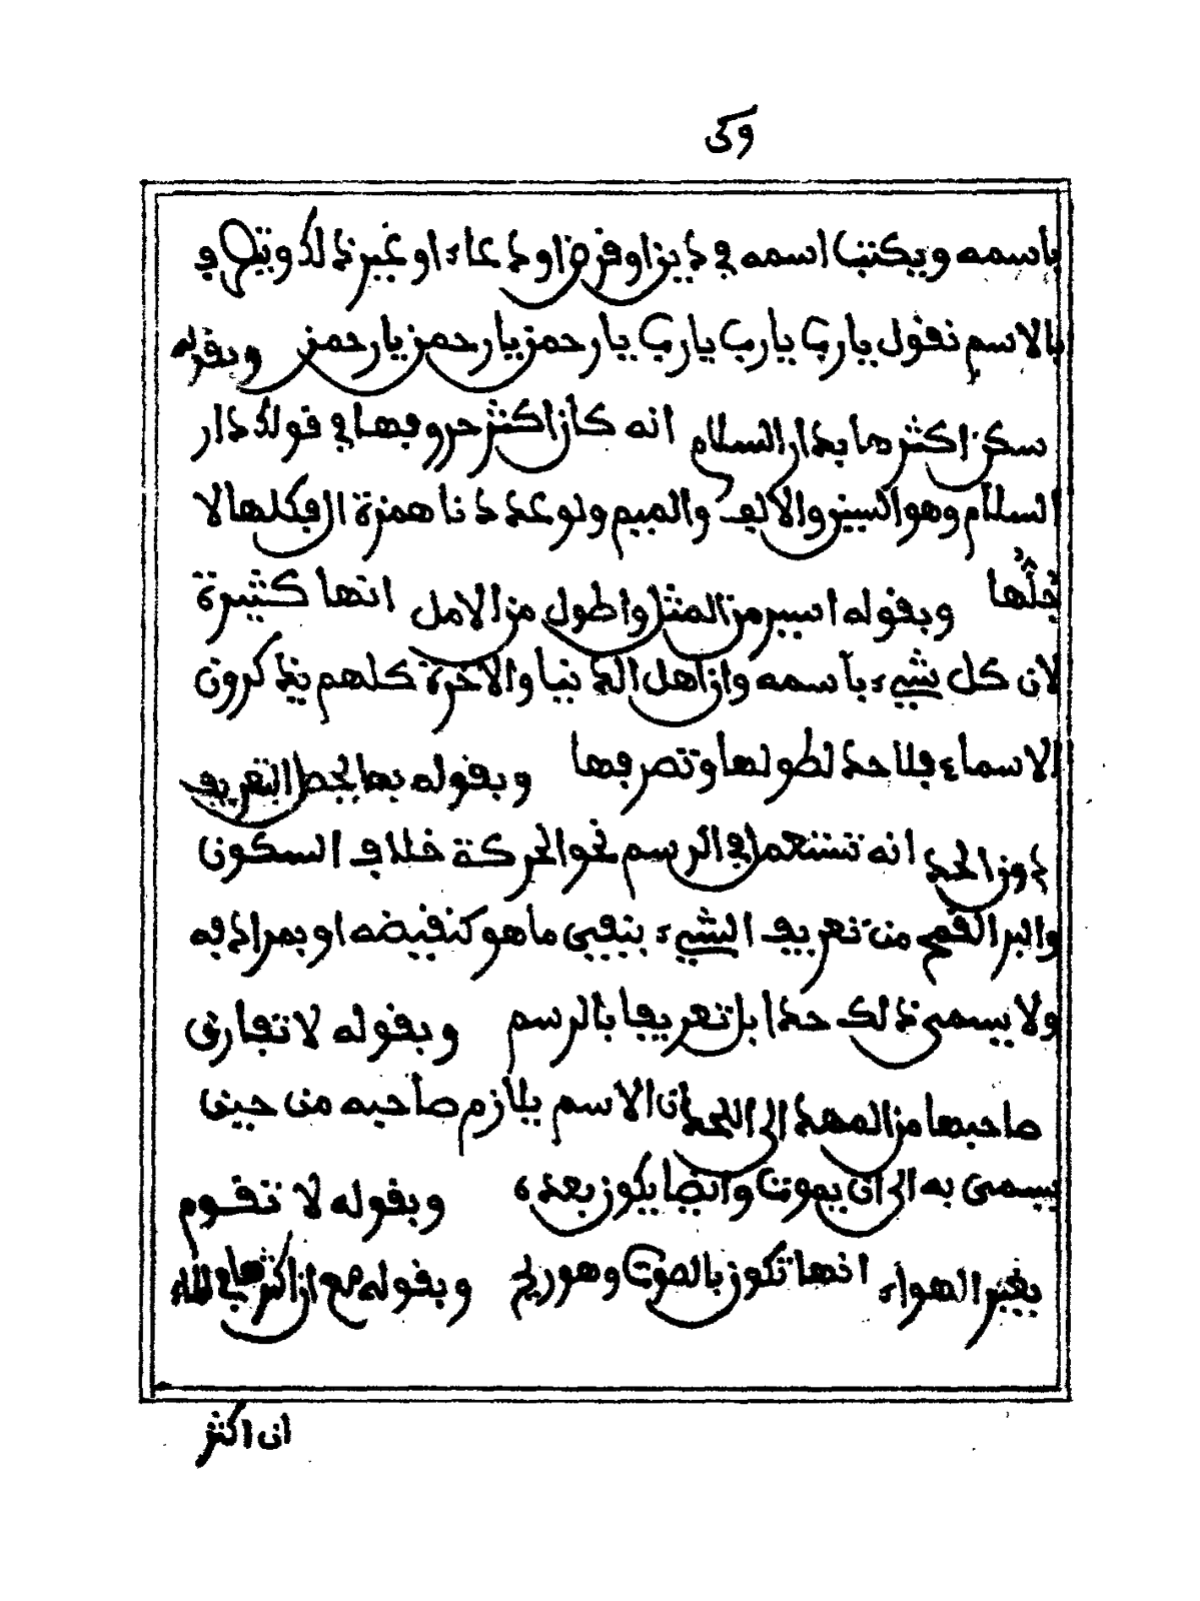 وكى
باسمه ويكتب اسمه في دين او فرض او دعاء او غير ذلك ويتلهى
بالاسم نقول يا رب يا رب يا رب يا رحمن يا رحمن يا رحمن وبقوله
سكن اكثرها بدار السلام انه كان اكثر حروفها في قولك دار
السلام وهو السين والالف والميم ولو عددنا همزة ال فكلها لا
جلها وبقوله اسير من المثل واطول من الامل انها كثيرة
لان كل شيء باسمه وان اهل الدنيا والآخرة كلهم يذكرون
الاسماء فلا حد لطولها وتصرفها وبقوله بها يحصل التعريف
دون الحد انه تستعمل في الرسم نحو الحركة خلاف السكون
والبر القمح من تعريف الشيء بنفي ما هو كنقيضه او بمرادفه
ولا يسمى ذلك حدا بل تعريفا بالرسم وبقوله لا تفارق
صاحبها من المهد الى اللحد ان الاسم يلازم صاحبه من حين
يسمى به الى ان يموت وايضا يكون بعده وبقوله لا تقوم
بغير الهواء انها تكون بالصوت وهو ريح وبقوله مع ان اكثرها في الماء
ان اكثر